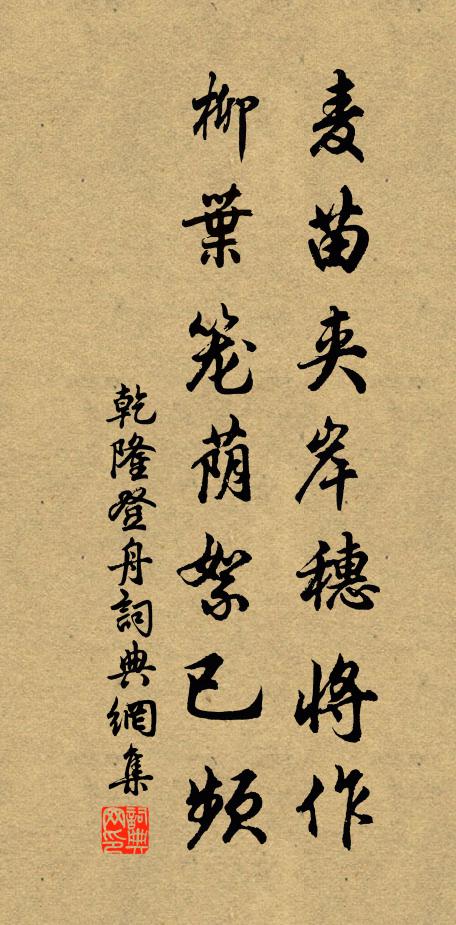 麦苗夹岸穗将作
柳葉笼荫絮已频
乾隆登舟詞典網集
詞典網印